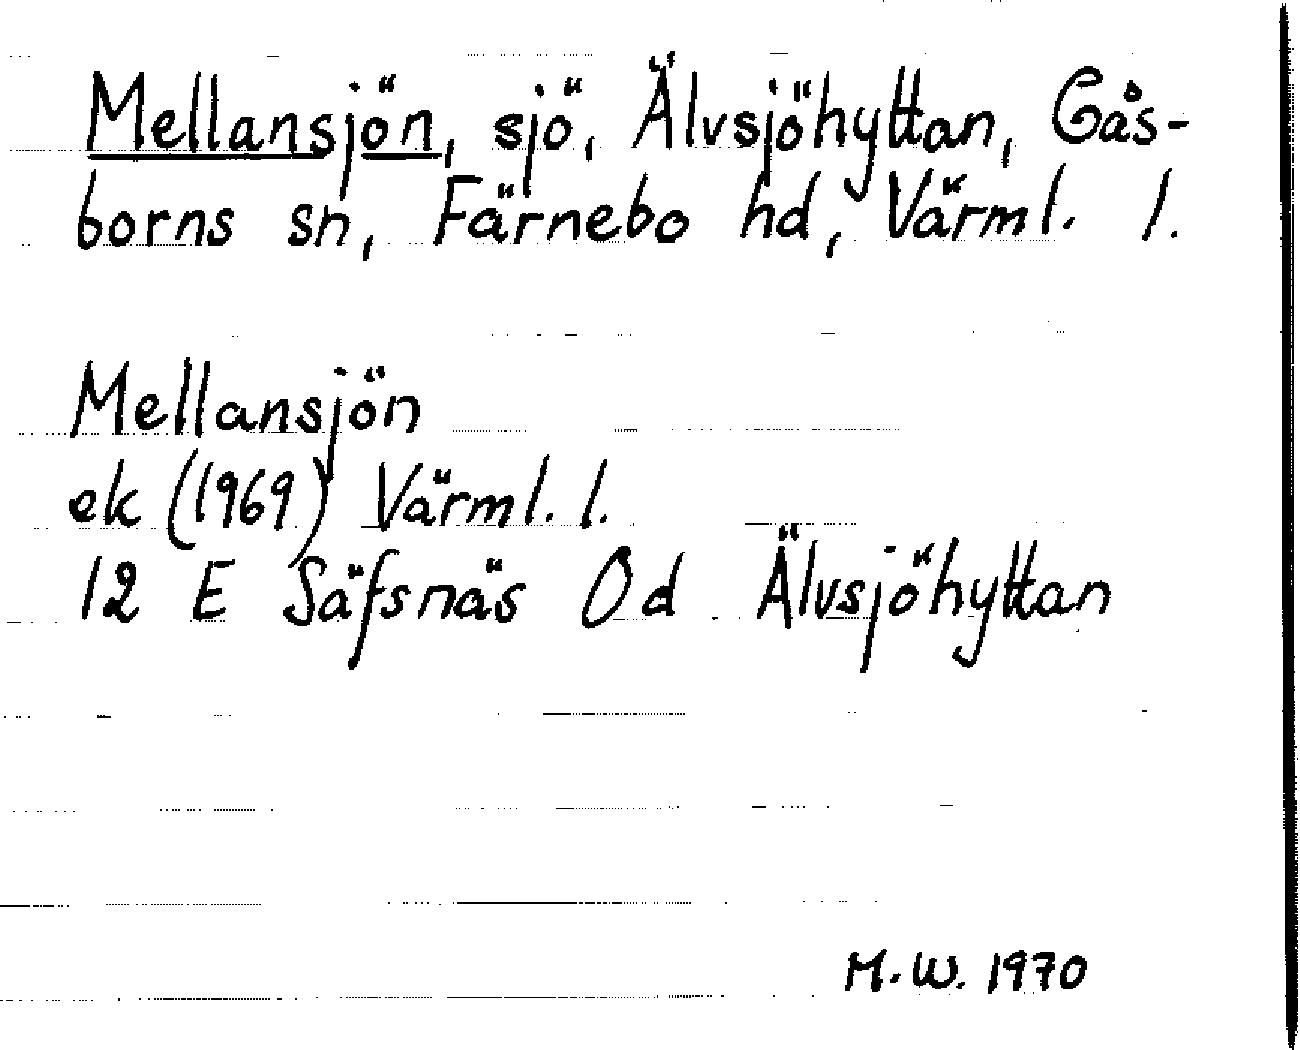 Mellansjön, sjö, Älvsjöhyttan, Gås-
borns sn, Färnebo hd, Värml. l.
Mellansjön
ek (1969) Värml. l.
12 E Säfsnäs 0d Älvsjöhyttan
M.W. 1970